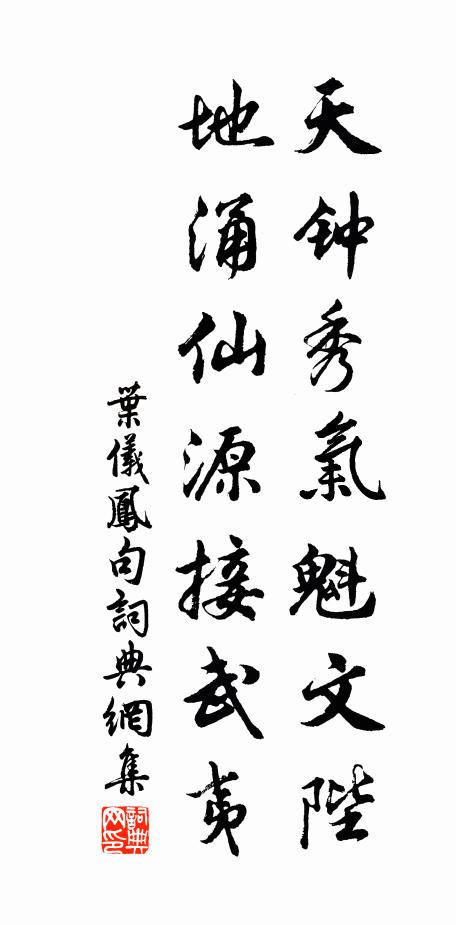 天钟秀氣魁文陛
地涌仙源接武夷
葉儀鳳句詞典網集
詞典网印